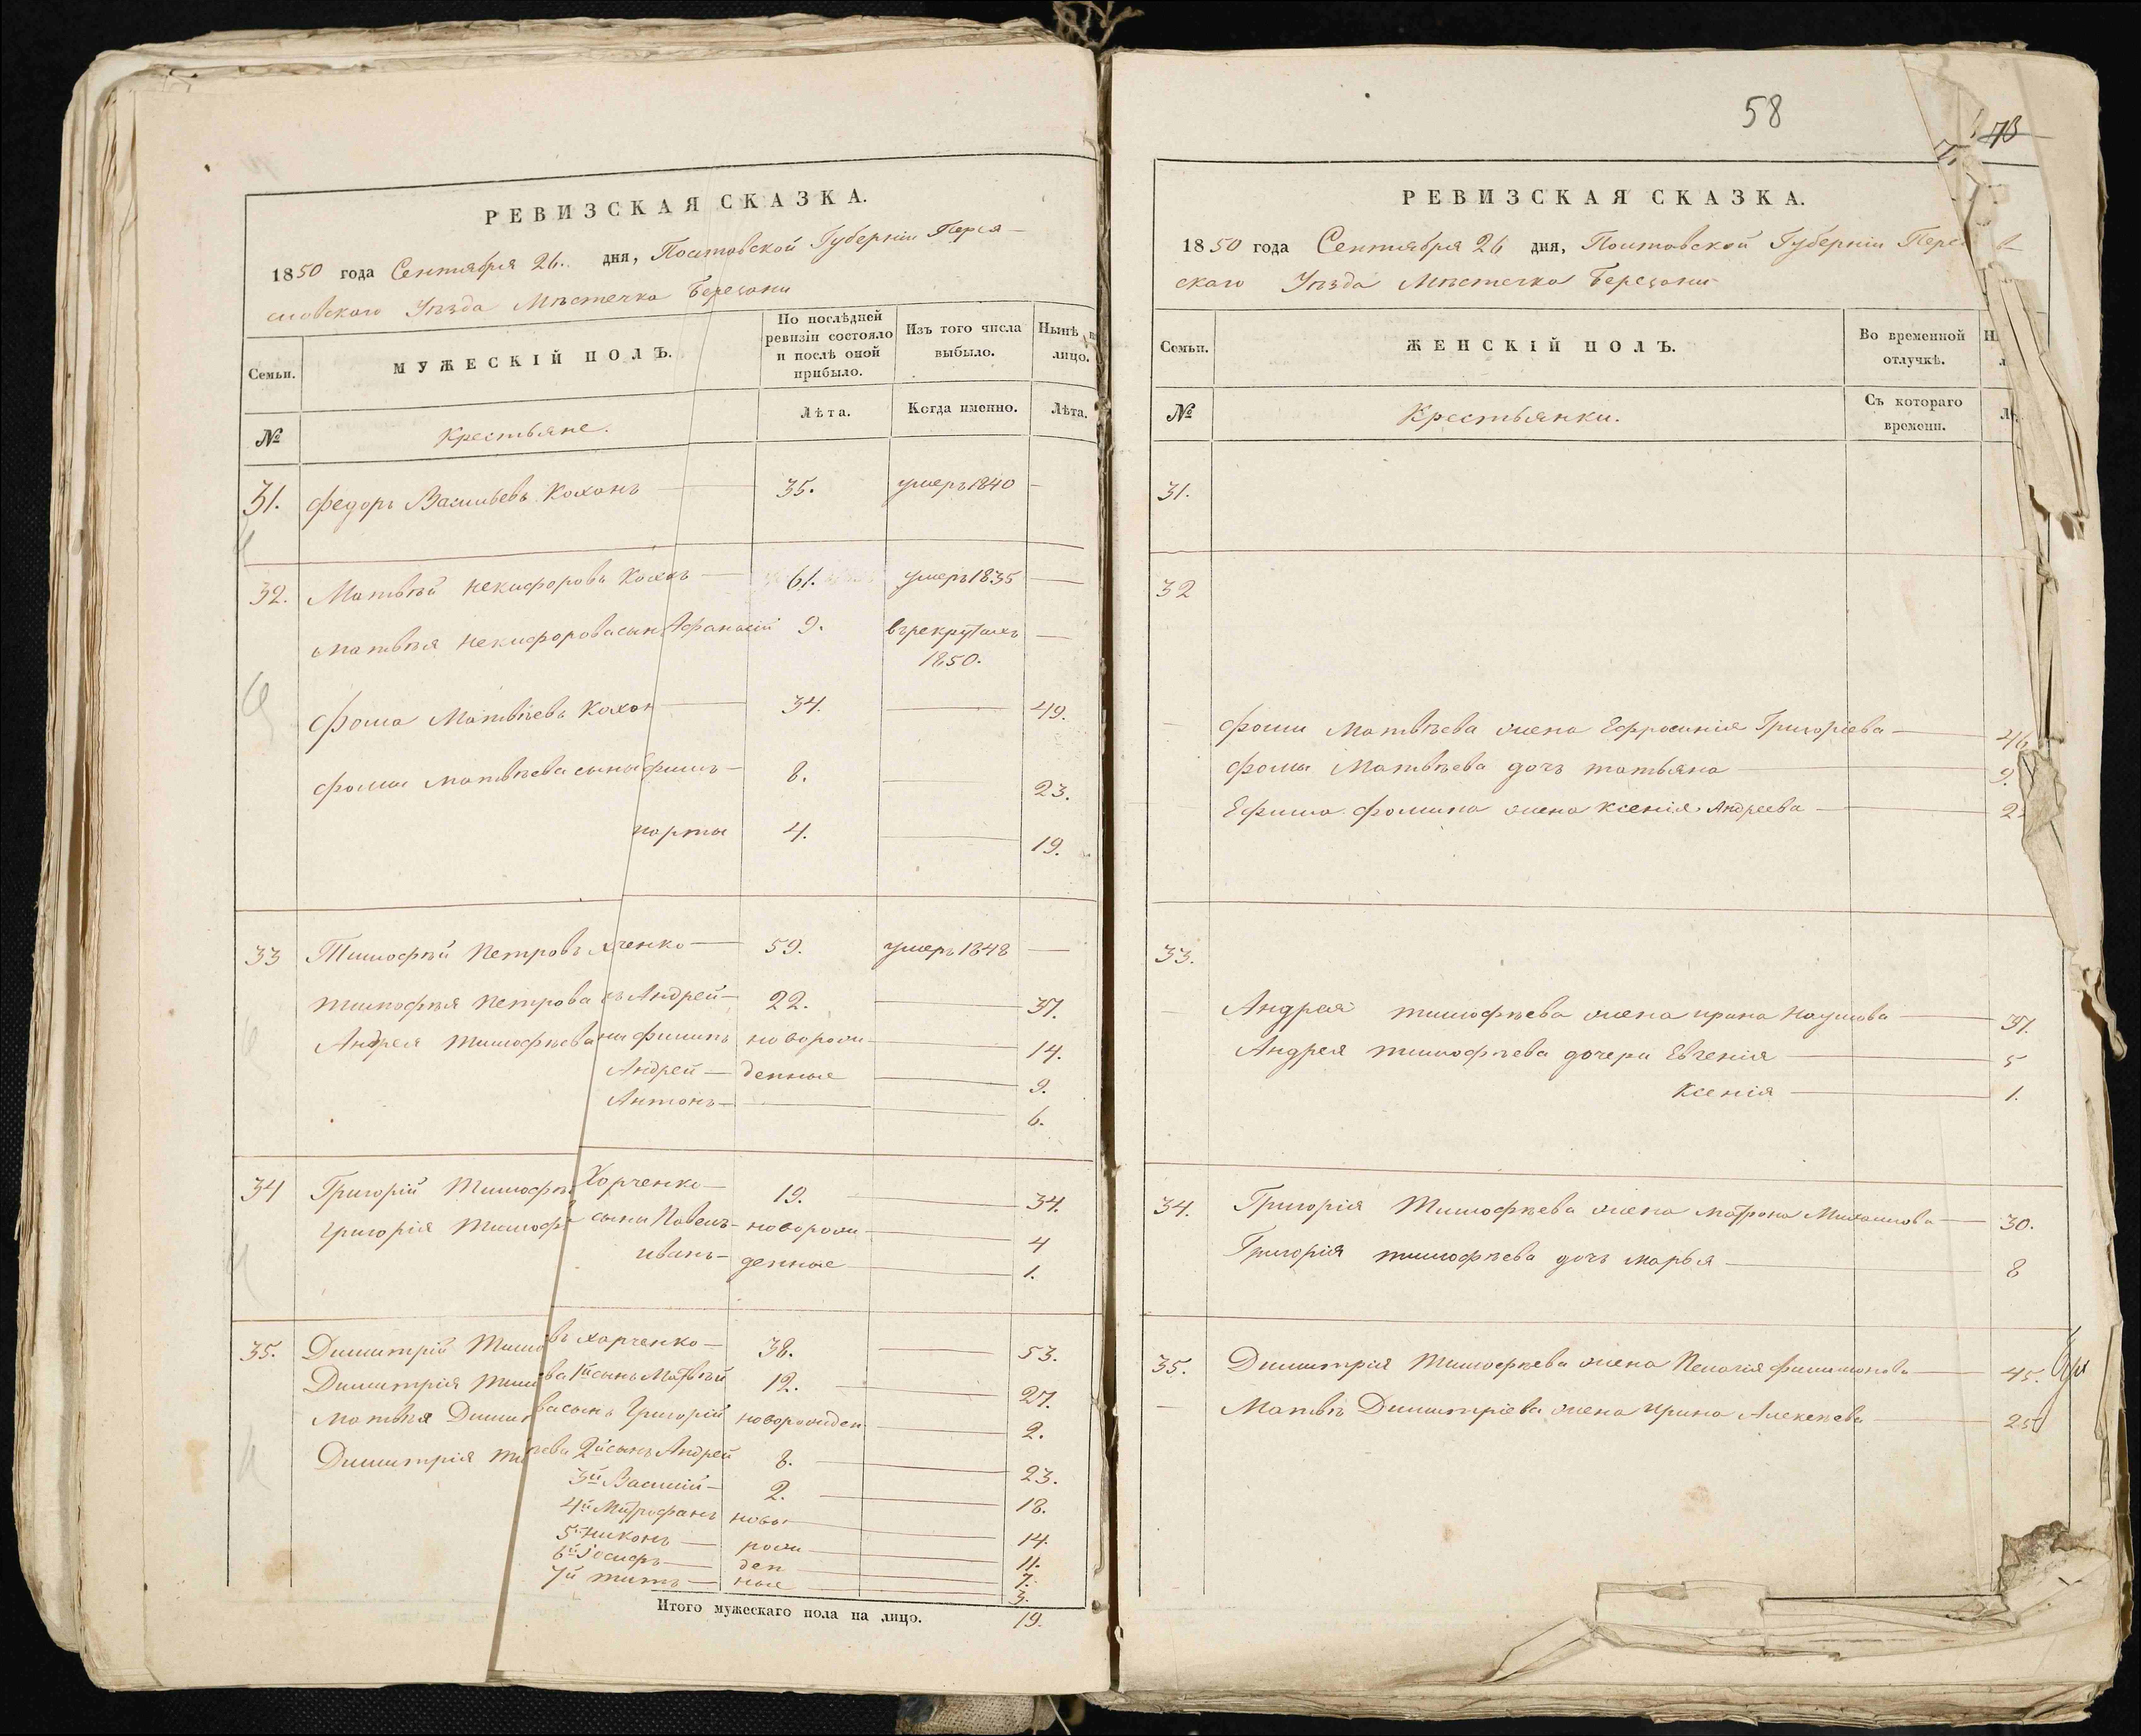 РЕВИЗСКАЯ СКАЗКА.
1850 года Сентября 26. дня, Полтовской Губерніи Перея-
словского Уѣзда Мѣстечка Березани
Семьи.
МУЖЕСКІЙ ПОЛЪ.
По послѣдней ревизіи состояло и послѣ оной прибыло.
Изъ того числа выбыло.
Нынѣ
лицо.
№
Крестьяне.
Лѣта.
Когда именно.
Лѣта.
31. Федоръ Васильевъ Коханъ 35. умеръ 1840 —
32. Матвѣй Некифоровъ 61. умеръ 1835 —
Матвѣя Некифорова сынъ Афанасій 9. въ рекрутахъ —
1850.
Фома Матвѣевъ Кохан 34. — 49.
Фомы Матвѣева сыны 8. — 23.
4. — 19.
33 Тимофѣй Петровъ ченко — 59. умеръ 1848 —
Тимофѣя Петрова ъ Андрей — 22. — 37.
Андрея Тимофѣева ны Филипъ новорож — 14.
Андрей — денные — 9.
Антонъ — — 6.
34 Григорій Тимофѣ Харченко — 19. — 34.
Григорія Тимофѣ сыны Павелъ — новорож — 4
Иванъ — денные — 1.
35. Димитрій Тимо въ Харченко — 38. — 53.
Димитрія Тимо ва 1й сынъ Матвѣй 12. — 27.
Матвѣя Димит ва сынъ Григорій новорожден — 2.
Димитрія Ти ѣева 2й сынъ Андрей 8. — 23.
3й Василій — 2. — 18.
4й Митрофанъ ново — 14.
5й Никонъ — рож — 11.
6й Іосифъ — ден — 7.
7й Титъ — ные — 3.
Итого мужескаго пола на лицо. 19.
58
73
РЕВИЗСКАЯ СКАЗКА.
1850 года Сентября 26 дня, Полтовской Губерніи Пере
скаго Уѣзда Мѣстечка Березани
Семьи.
ЖЕНСКІЙ ПОЛЪ.
Во временной отлучкѣ.
№
Крестьянки.
Съ котораго времени.
31.
32
Фомы Матвѣева жена Ефросинія Григоріева — 46
Фомы Матвѣева дочь Татьяна — 9.
Ефима Фомина жена Ксенія Андреева — 2
33.
Андрея Тимофѣева жена Ирина Наумова — 37.
Андрея Тимофѣева дочери Евгенія — 5
Ксенія — 1.
34. Григорія Тимофѣева жена Матрона Михаилова — 30.
Григорія Тимофѣева дочь Марья — 8
35. Димитрія Тимофѣева жена Пелагія Филимонова — 45.
Матвѣ Димитріева жена Ирина Алексѣева — 25